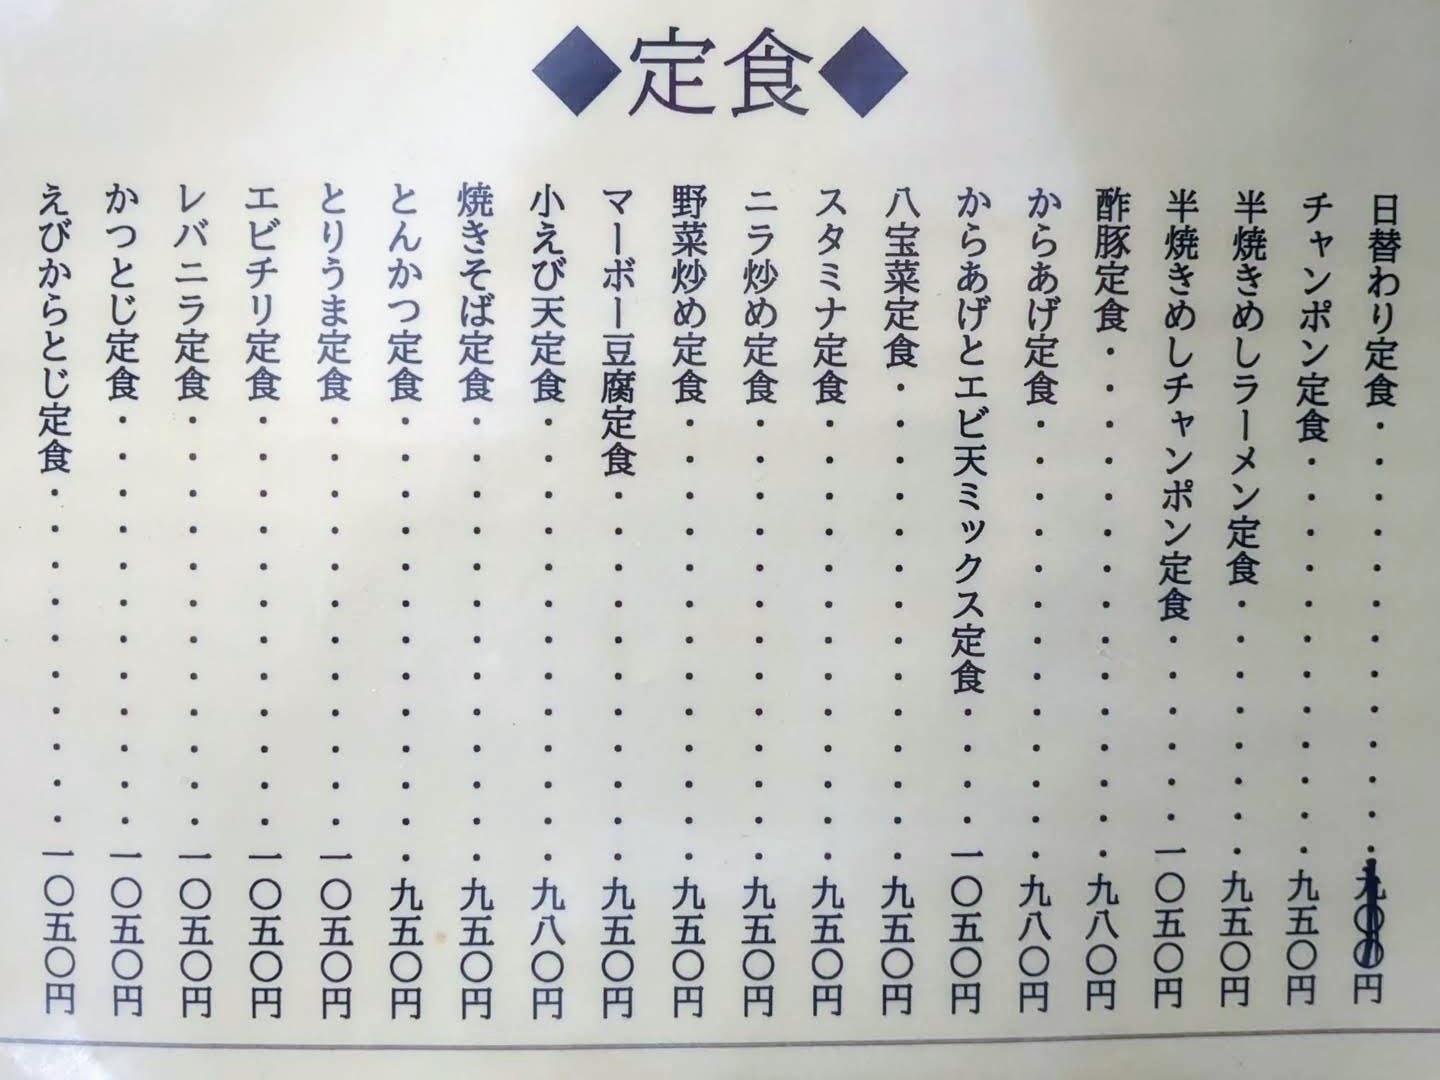 ◆定食◆
日替わり定食・・・・・・・・・・・・・九〇〇円
チャンポン定食・・・・・・・・・・・・九五〇円
半焼きめしラーメン定食・・・・・・・・九五〇円
半焼きめしチャンポン定食・・・・・・一〇五〇円
酢豚定食・・・・・・・・・・・・・・・九八〇円
からあげ定食・・・・・・・・・・・・・九八〇円
からあげとエビ天ミックス定食・・・・一〇五〇円
八宝菜定食・・・・・・・・・・・・・・九五〇円
スタミナ定食・・・・・・・・・・・・・九五〇円
ニラ炒め定食・・・・・・・・・・・・・九五〇円
野菜炒め定食・・・・・・・・・・・・・九五〇円
マーボー豆腐定食・・・・・・・・・・・九五〇円
小えび天定食・・・・・・・・・・・・・九八〇円
焼きそば定食・・・・・・・・・・・・・九五〇円
とんかつ定食・・・・・・・・・・・・・九五〇円
とりうま定食・・・・・・・・・・・・一〇五〇円
エビチリ定食・・・・・・・・・・・・一〇五〇円
レバニラ定食・・・・・・・・・・・・一〇五〇円
かつとじ定食・・・・・・・・・・・・一〇五〇円
えびからとじ定食・・・・・・・・・・一〇五〇円